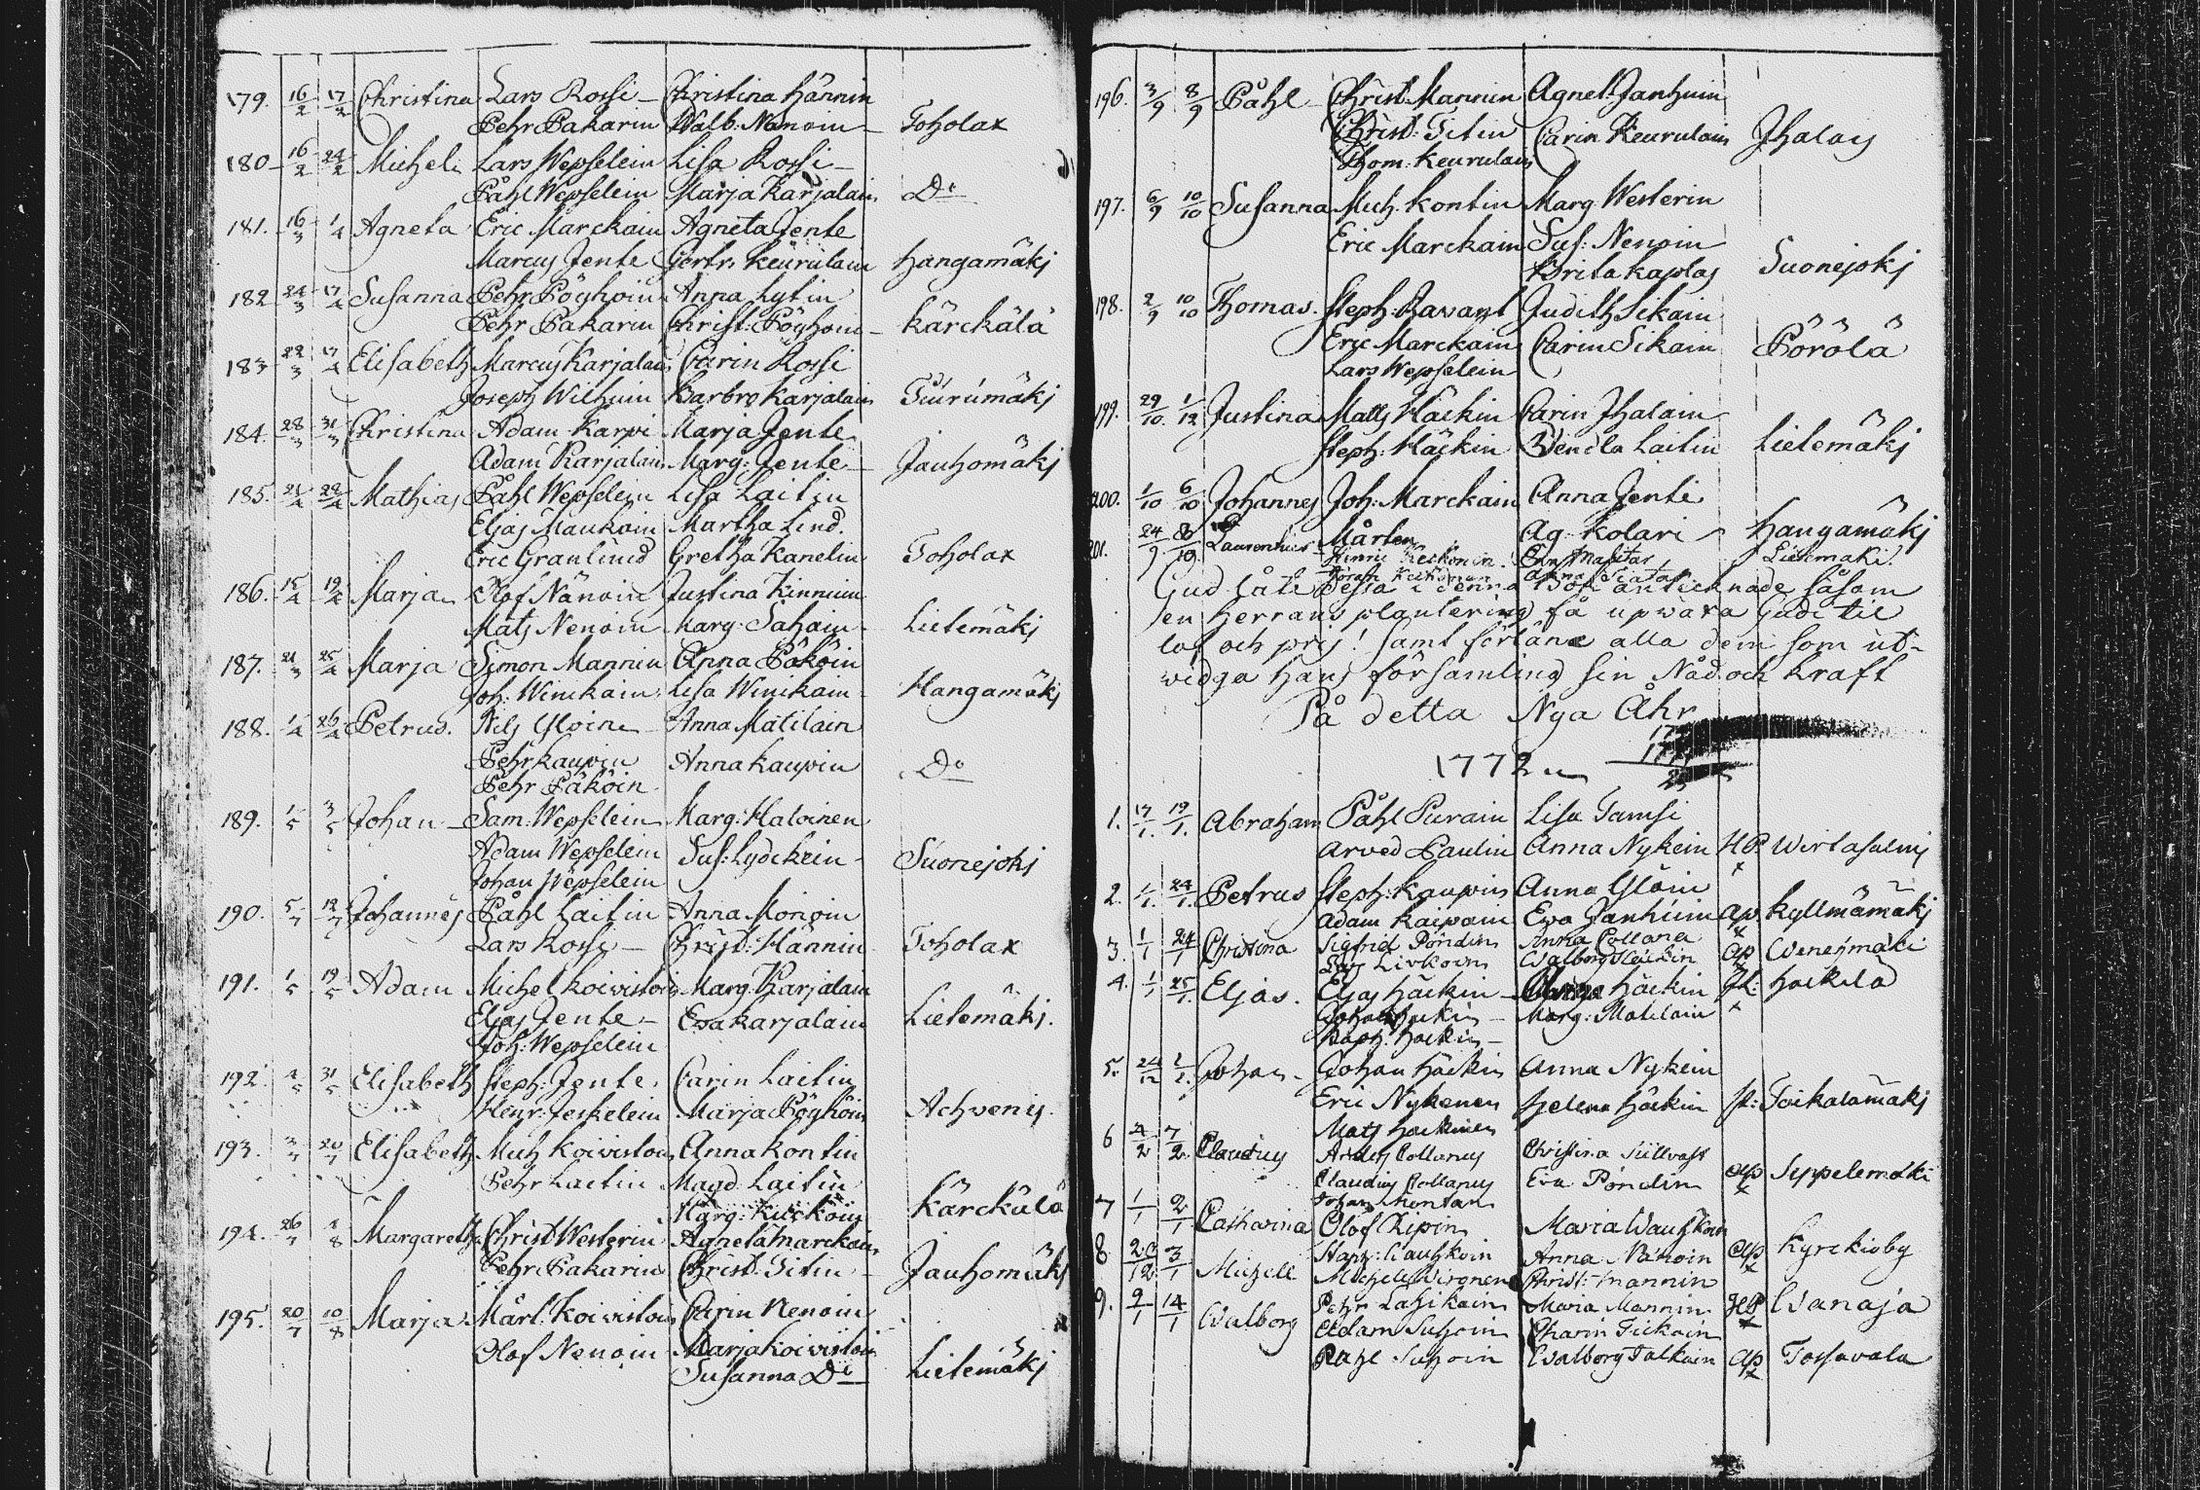 179. 16/2 17/2 Christina Lars Rossi Christina Hännin
Pehr Pakarin Walb: Nenoin Toholax
180 16/2 24/2 Michel Lars Wepselein Lisa Rossi
Påhl Wepselein Marja Karjalain Do
181. 16/3 1/4 Agneta Eric Marckain Agneta Jente
Marcus Jente Gertr. Keurulain Hangamäkj
182 24/3 17/4 Susanna Pehr Pöyhoin Anna Lytin
Pehr Pakarin Christ: Pöyhoin Kärckälä
183 22/3 17/4 Elisabeth Marcus Karjalain Carin Rossi
Joseph Wilhuin Barbro Karjalain
184. 28/3 31/3 Christina Adam Karpi Marja Jente
Adam Karjalain Marg: Jente Jauhomäkj
185. 21/4 22/4 Mathias Påhl Wepselein Lisa Laitin
Eljas Maukoin Martha Lind.
Eric Granlund Gretha Kanelin Toholax
186. 15/4 19/4 Marja Olof Nänoin Justina Kinnuin
Mats Nenoin Marg: Sahain Lielemäkj
187. 21/3 25/4 Marja Simon Mannin Anna Päköin
Joh: Winikain Lisa Winikain Hangamäkj
188. 1/4 26/4 Petrus. Nils Yloin Anna Matilain
Pehr Kaupin Anna Kaupin Do
Pehr Päköin
189. 1/5 3/5 Johan Sam: Wepselein Marg: Haloinen
Adam Wepselein Sus: Lyöckein Suonejokj
Johan Wepselein
190. 5/7 12/7 Johannes Påhl Laitin Anna Monoin
Lars Rossi Christ: Hännin Toholax
191. 1/5 19/5 Adam Michel Koivistoin Marg: Karjalain
Eljas Jente Eva Karjalain Lielemäkj.
Joh: Wepselein
192. 31/5 Elisabeth Steph: Jente Carin Laitin
Henr: Jeskelein Marja Pöyhöin Achvenis.
193. 3/7 20/7 Elisabeth Mich Koivistoin Anna Kontin
Pehr Laitin Magd. Laitin
Marg: Kuckoin Kärckälä
194. 26/7 Margaretha Christ Westerin Agneta Marckain
Pehr Pakarin Christ: Titin Jauhomäkj
195. 20/7 10/8 Marja Mårt. Koivistoin Carin Nenoin
Olof Nenoin Marja Koivistoin
Susanna Do Lielemäkj
196. 3/9 8/9 Påhl Christ: Mannin Agnet: Janhuin
Christ: Titin Carin Keurulain Jhalais
Thom: Keurulain
197. 6/9 10/10 Susanna Mich. Kontin Marg Westerin
Eric Marckain Sus: Nenoin
Brita Kaplas Suonejokj
198. 2/9 10/10 Thomas. Steph: Judith Sikain
Eric Marckain Carin Sikain Pörölä
Lars Wepselein
199. 29/10. 1/12 Justina Matts Häckin Carin Jhalain
Steph: Häckin Wendla Laitin Lielemäkj
200. 1/10 6/10 Johannes Joh: Marckain Anna Jente
201. 24/9 Laurentius Mårten Ag Kolari Hangamäkj
Hinric Keckonin Lielemäki.
Gud låte dessa i denna Bok antecknade såsom
en Herrans plantering få upwäxa Gudi til
lof och pris! samt förläna alla dem som ut-
widga hans församling sin Nåd och kraft
På detta Nya Åhr
1772
1. 17/1. 19/1. Abraham Påhl Purain Lisa Tamsi
Arved Paulin Anna Nykein HP. Wirtasalmj
2. 1/1. 24/1. Petrus Steph: Kaupin Anna Ylöin
Adam Kaipain Ewa Janhuin ap Kyllmämäkj
3. 1/1 24/1 Christina Sigfrid Pöndin Anna Collana
Lars Livkoin Walborg Häckin ap Wenejmäki
4. 1/1 25/1. Eljas. Eljas Häckin Häckin Häckilä
Johan Häckin Marg: Matilain
Staph. Häckin
5. 24/12 2/1. Johan Johan Häckin Anna Nykein
Eric Nykenen Helena Häckin Toikalamäkj
Mats Häckinen
6 4/2 7/2. Claudius Anders Collanus Christina
Claudius Collanus Eva Pöndin ap Seppelemäki
7 1/1 2/1 Catharina Olof Ripin Maria Wauhkoin
8 20/12 3/1 Michell Stapz: Wauhkoin Anna Näkoin ap Kyrckioby
Michell Christ: Mannin
9. 9/1 14/1 Walborg Pehr Lahikain Maria Mannin HP Wanaja
Adam Suhoin Charin Tickain
Påhl Suhoin Walborg Valkain ap Tossavala